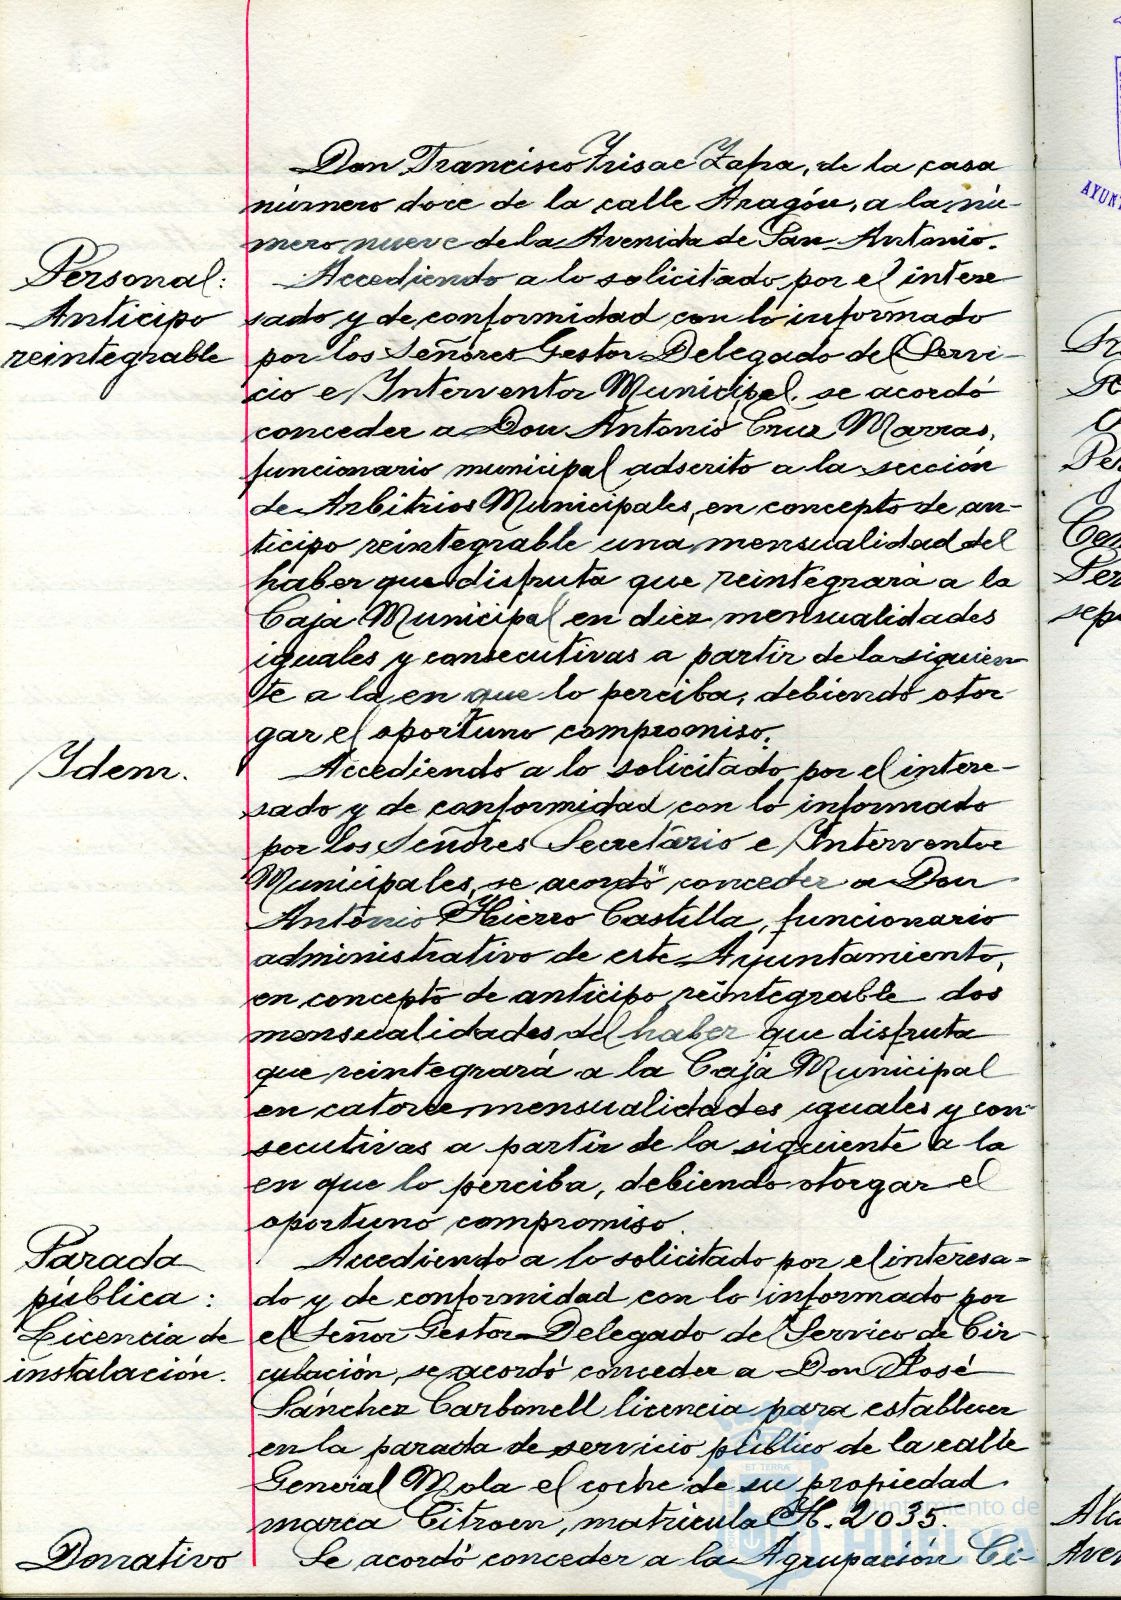 Don Francisco Frisac Zapa, de la casa
número doce de la calle Aragón, a la nú-
mero nueve de la Avenida de San Antonio.
Personal:
Anticipo
reintegrable
Accediendo a lo solicitado por el intere
sado y de conformidad con lo informado
por los Señores Gestor Delegado del Servi-
cio e Interventor Municipal, se acordó
conceder a Don Antonio Cruz Marras,
funcionario municipal adscrito a la sección
de Arbitrios Municipales, en concepto de an-
ticipo reintegrable una mensualidad del
haber que disfruta que reintegrará a la
Caja Municipal en diez mensualidades
iguales y consecutivas a partir de la siguien
te a la en que lo perciba, debiendo otor
gar el oportuno compromiso.
Idem.
Accediendo a lo solicitado por el intere-
sado y de conformidad con lo informado
por los Señores Secretario e Interventor
Municipales, se acordó conceder a Don
Antonio Hierro Castilla, funcionario
administrativo de este Ayuntamiento,
en concepto de anticipo reintegrable dos
mensualidades del haber que disfruta
que reintegrará a la Caja Municipal
en catorce mensualidades iguales y con-
secutivas a partir de la siguiente a la
en que lo perciba, debiendo otorgar el
oportuno compromiso.
Parada
pública:
Licencia de
instalación.
Accediendo a lo solicitado por el interesa-
do y de conformidad con lo informado por
el Señor Gestor Delegado del Servico de Cir-
culación, se acordó conceder a Don José
Sánchez Carbonell licencia para establecer
en la parada de servicio público de la calle
General Mola el coche de su propiedad
marca Citroen, matricula H. 2035.
Donativo
Se acordó conceder a la Agrupación Ci-
Ayuntamiento de
HUELVA